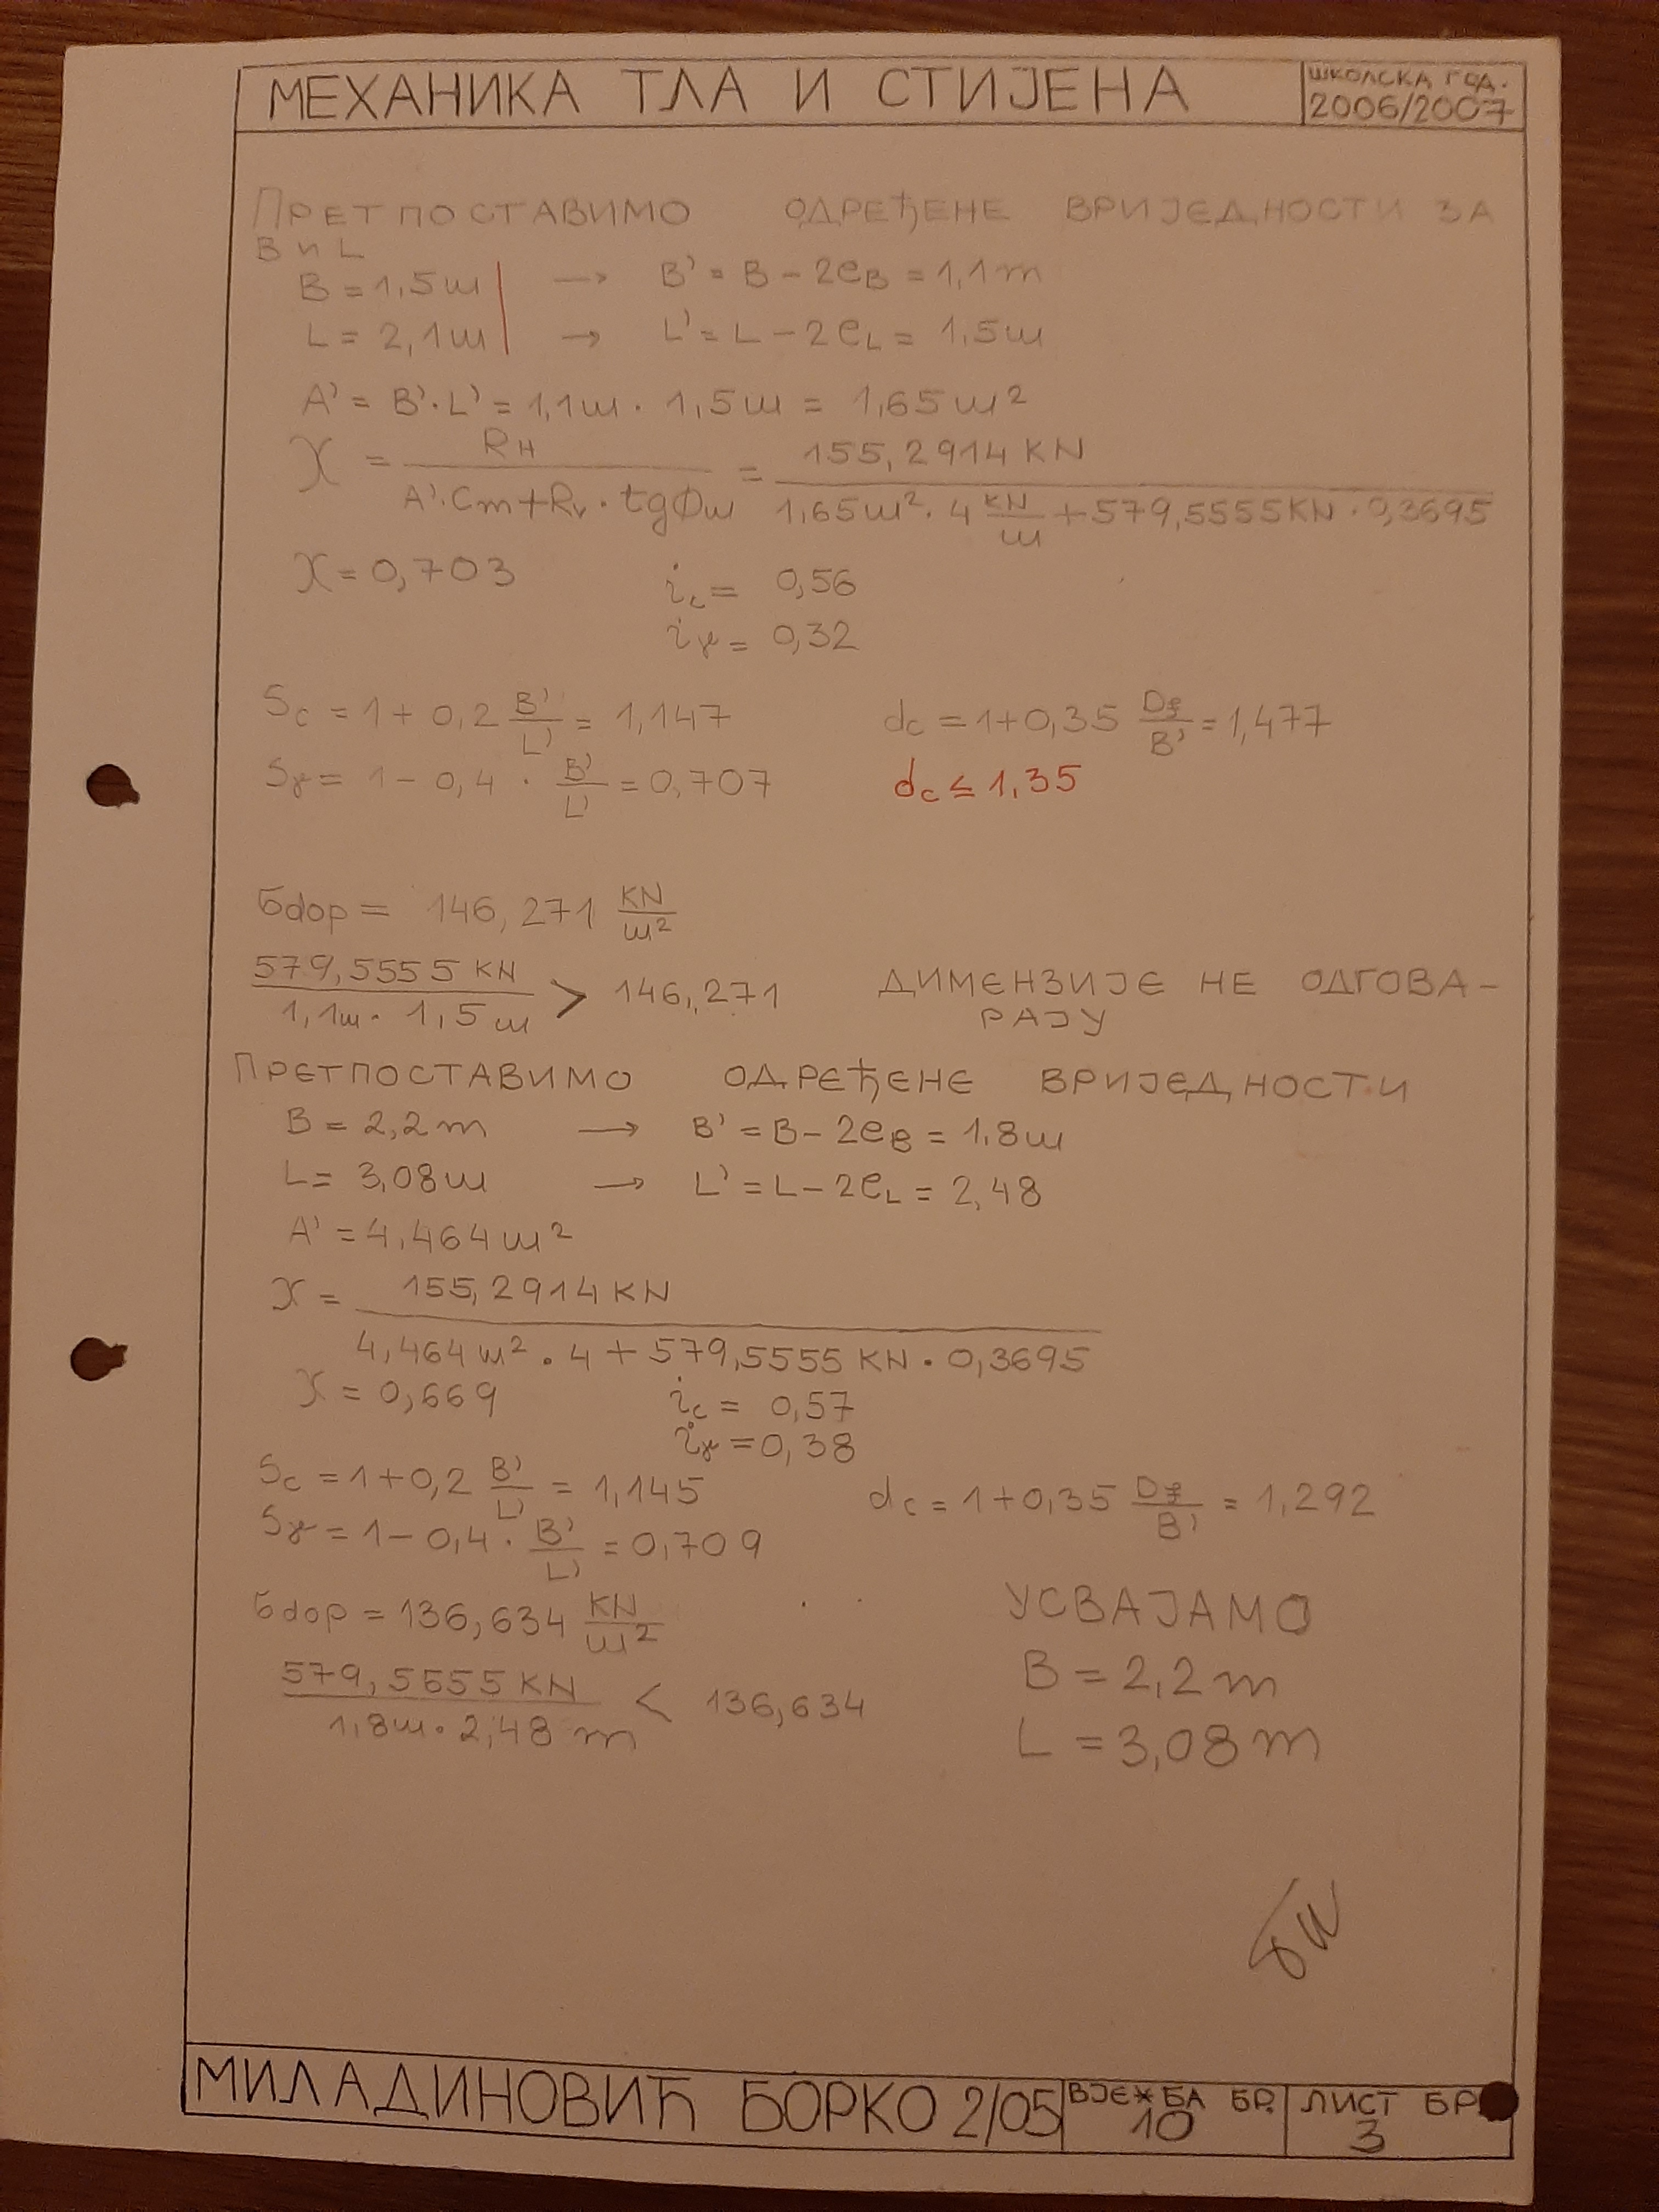 МЕХАНИКА ТЛА И СТИЈЕНА
ШКОЛСКА ГОД.
2006/2007
ПРЕТПОСТАВИМО ОДРЕЂЕНЕ ВРИЈЕДНОСТИ ЗА
B И L
B = 1,5m → B' = B - 2eB = 1,1m
L = 2,1m → L' = L - 2eL = 1,5m
A' = B'·L' = 1,1m · 1,5m = 1,65m²
X = RH / (A'·Cm+Rv·tgΦm) = 155,2914 KN / (1,65m²·4 KN/m + 579,5555KN·0,3695)
X = 0,703 ic = 0,56
iγ = 0,32
Sc = 1 + 0,2 B'/L' = 1,147 dc = 1+0,35 Df/B' = 1,477
Sγ = 1 - 0,4 · B'/L' = 0,707 dc ≤ 1,35
σdop = 146,271 KN/m²
579,5555 KN / (1,1m · 1,5m) > 146,271 ДИМЕНЗИЈЕ НЕ ОДГОВА-
РАЈУ
ПРЕТПОСТАВИМО ОДРЕЂЕНЕ ВРИЈЕДНОСТИ
B = 2,2m → B' = B - 2eB = 1,8m
L = 3,08m → L' = L - 2eL = 2,48
A' = 4,464m²
X = 155,2914 KN / (4,464m²·4 + 579,5555 KN·0,3695)
X = 0,669 ic = 0,57
iγ = 0,38
Sc = 1+0,2 B'/L' = 1,145 dc = 1+0,35 Df/B' = 1,292
Sγ = 1 - 0,4 · B'/L' = 0,709
σdop = 136,634 KN/m²
579,5555 KN / (1,8m·2,48m) < 136,634
УСВАЈАМО
B = 2,2m
L = 3,08m
МИЛАДИНОВИЋ БОРКО 2/05
ВЈЕЖБА БР.
10
ЛИСТ БР
3